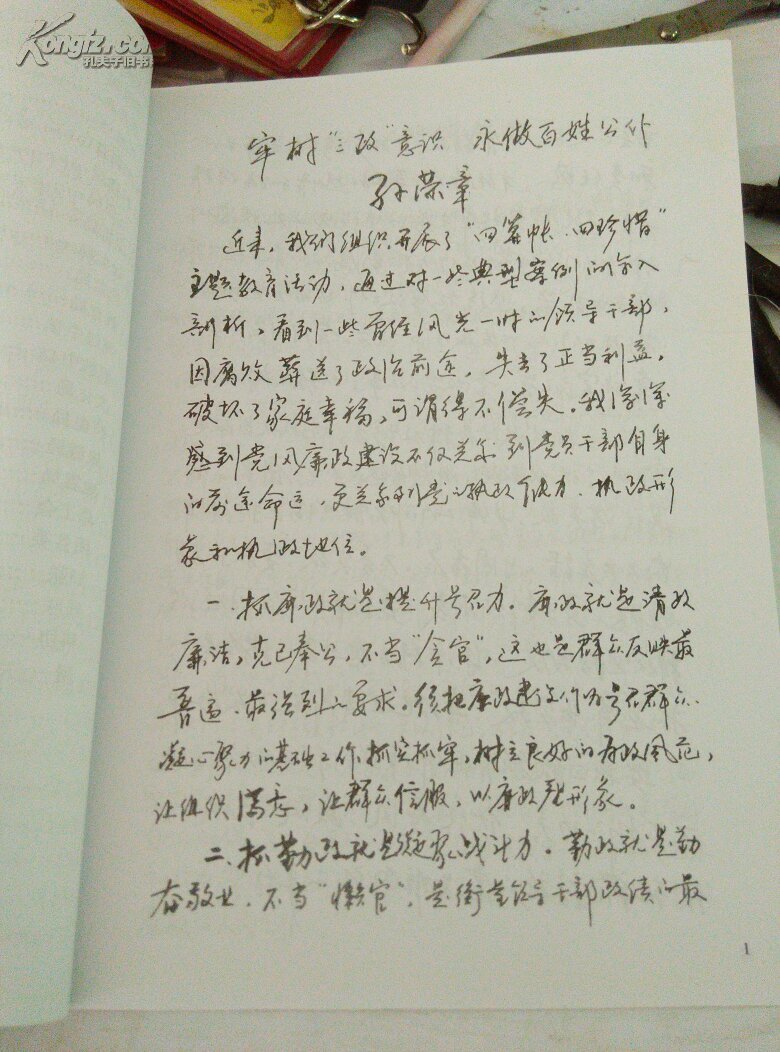 Kongfz.com
孔夫子旧书网
牢树“三政”意识 永做百姓公仆
孙荣章
近来，我们组织开展了“四算帐、四珍惜”
主题教育活动，通过对一些典型案例的深入
剖析，看到一些曾经风光一时的领导干部，
因腐败葬送了政治前途，失去了正当利益，
破坏了家庭幸福，可谓得不偿失。我深深
感到党风廉政建设不仅关系到党员干部自身
的前途命运，更关系到党的执政能力、执政形
象和执政地位。
一、抓廉政就是提升号召力。廉政就是清政
廉洁，克己奉公，不当“贪官”，这也是群众反映最
普遍、最强烈的要求。须把廉政建设作为号召群众、
凝心聚力的基础工作抓实抓牢，树立良好的廉政风范，
让组织满意，让群众信服，以廉政塑形象。
二、抓勤政就是凝聚战斗力。勤政就是勤
奋敬业，不当“懒官”，是衡量领导干部政绩的最
1